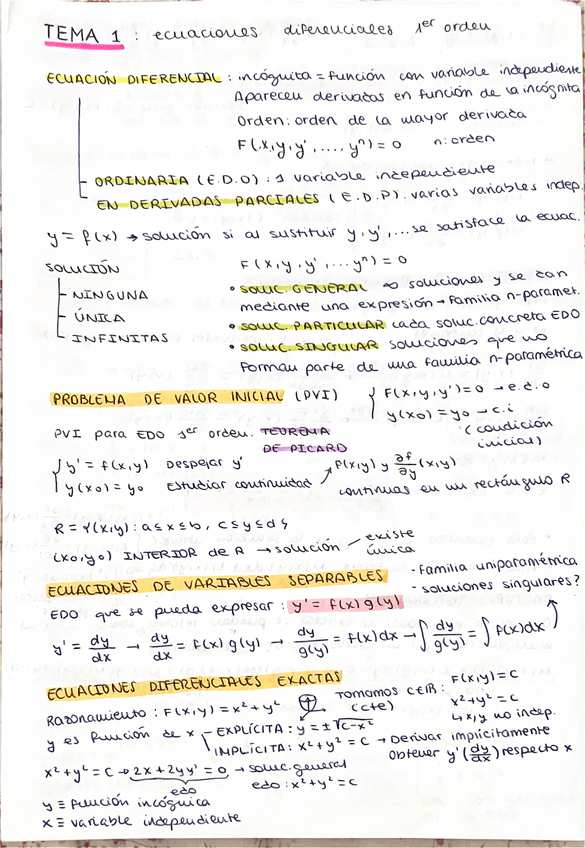 TEMA 1 : ecuaciones diferenciales 1er orden
ECUACIÓN DIFERENCIAL : incógnita = función con variable independiente
Aparecen derivadas en función de la incógnita
Orden: orden de la mayor derivada
F(x,y,y',...,yⁿ) = 0 n: orden
ORDINARIA (E.D.O) : 1 variable independiente
EN DERIVADAS PARCIALES (E.D.P): varias variables indep.
y = f(x) → solución si al sustituir y, y', ... se satisface la ecuac.
SOLUCIÓN
NINGUNA
ÚNICA
INFINITAS
F(x,y,y',...yⁿ) = 0
• SOLUC. GENERAL ∞ soluciones y se dan
mediante una expresión → Familia n-paramet.
• SOLUC. PARTICULAR cada soluc. concreta EDO
• SOLUC. SINGULAR soluciones que no
forman parte de una familia n-paramétrica
PROBLEMA DE VALOR INICIAL (PVI)
{ F(x,y,y') = 0 → e.d.o
y(x0) = y0 → c.i
(condición
inicial)
PVI para EDO 1er orden. TEOREMA
DE PICARD
{ y' = f(x,y) Despejar y'
y(x0) = y0 Estudiar continuidad
f(x,y) y ∂f/∂y (x,y)
continuas en un rectángulo R
R = {(x,y): a≤x≤b, c≤y≤d}
(x0,y0) INTERIOR de R → solución existe
única
ECUACIONES DE VARIABLES SEPARABLES
- Familia uniparamétrica
- soluciones singulares?
EDO que se pueda expresar : y' = f(x) g(y)
y' = dy/dx → dy/dx = f(x) g(y) → dy/g(y) = f(x)dx → ∫ dy/g(y) = ∫ f(x)dx
ECUACIONES DIFERENCIALES EXACTAS
Razonamiento : F(x,y) = x² + y² ⊕ Tomamos C∈ℝ:
(cte)
F(x,y) = C
x² + y² = C
↳ x,y no indep.
y es función de x
- EXPLÍCITA: y = ±√C-x²
IMPLÍCITA: x² + y² = C → Derivar implícitamente
Obtener y' (dy/dx) respecto x
x² + y² = C → 2x + 2yy' = 0 → soluc. general
edo
edo : x² + y² = C
y ≡ función incógnita
x ≡ variable independiente